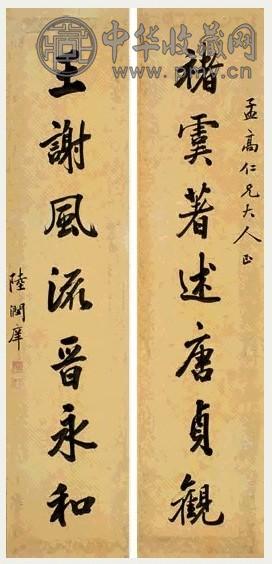 中华收藏网
孟高仁兄大人正
褚虞著述唐貞觀
王謝風流晋永和
陸潤庠